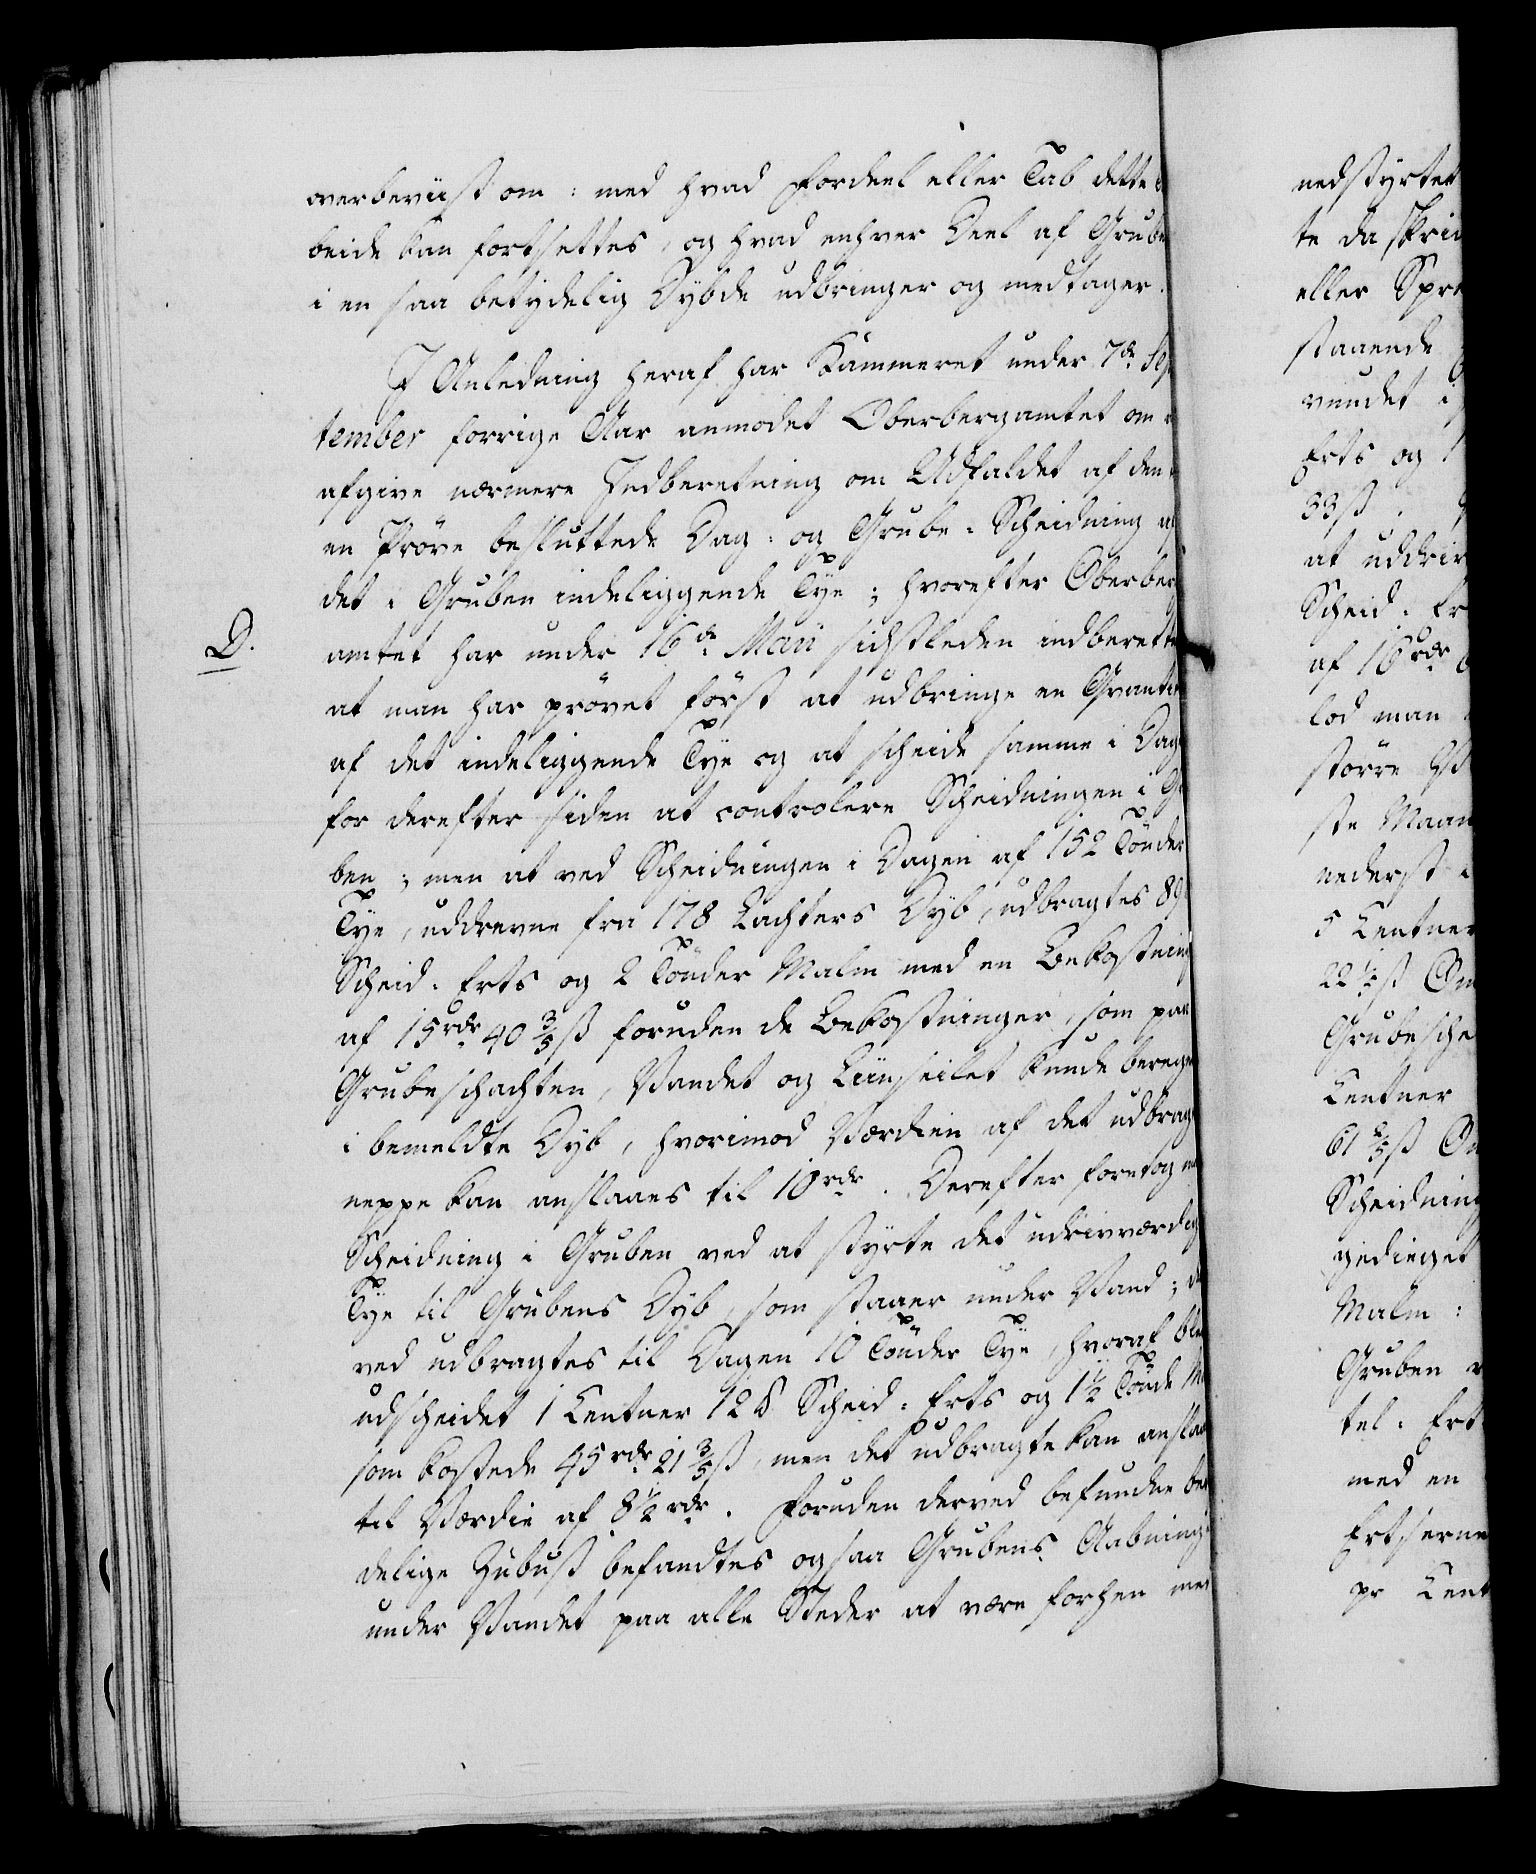 overbeviist om: med hvad Fordeel eller Tab dette
beide kan fortsettes, og hvad enhver Deel af Grube
i en saa betydelig Dybde udbringer og medtager.
I Anledning heraf har Kammeret under 7de Sep
tember forrige Aar anmodet Oberbergamtet om
afgive nærmere Indberetning om Udfaldet af den
en Prøve besluttede Dag- og Grube-Scheidning af
det i Gruben indeliggende Tye; hvorefter Oberber
D.
amtet har under 16de Maii sidstleden indberette
at man har prøvet først at udbringe en Qvanti
af det indeliggende Tye og at scheide samme i Dag
for derefter siden at controlere Scheidningen i G
ben; men at ved Scheidningen i Dagen af 152 Tønder
Tye, uddrevne fra 178 Lachters Dyb, udbragtes 89
Scheid-Erts og 2 Tønder Malm med en Bekostning
af 15 rdr 40 3/5 ß foruden de Bekostninger, som paa
Grubeschachten, Vandet og Liinseilet kunde bereg
i bemeldte Dyb, hvorimod Værdien af det udbrag
neppe kan anslaaes til 10 rdr. Derefter foretog
Scheidning i Gruben ved at styrte det udrivværdig
Tye til Grubens Dyb, som staaer under Vand;
ved udbragtes til Dagen 10 Tønder Tye, hvoraf ble
udscheidet 1 Centner 12 ℔ Scheid-Erts og 1 1/2 Tønde M
som kostede 45 rdr 21 3/5 ß, men det udbragte kan ansla
til Værdie af 8 1/2 rdr. Foruden derved befundne be
delige Zubuß befandtes ogsaa Grubens Aabning
under Vandet paa alle Steder at være forhen
nedstyrtet
te da skrid
eller Spr
staaende
vundet i
Erts og 1
33 ß.
at uddriv
Scheid-Er
af 16 rdr
lod man
større
ste Maan
nederst i
5 Centner
22 ß
Grubesche
Centner
61 2/5 ß
Scheidning
gedinget
Malm:
Gruben
tel-Ert
med en
Ertserne
pr Cent